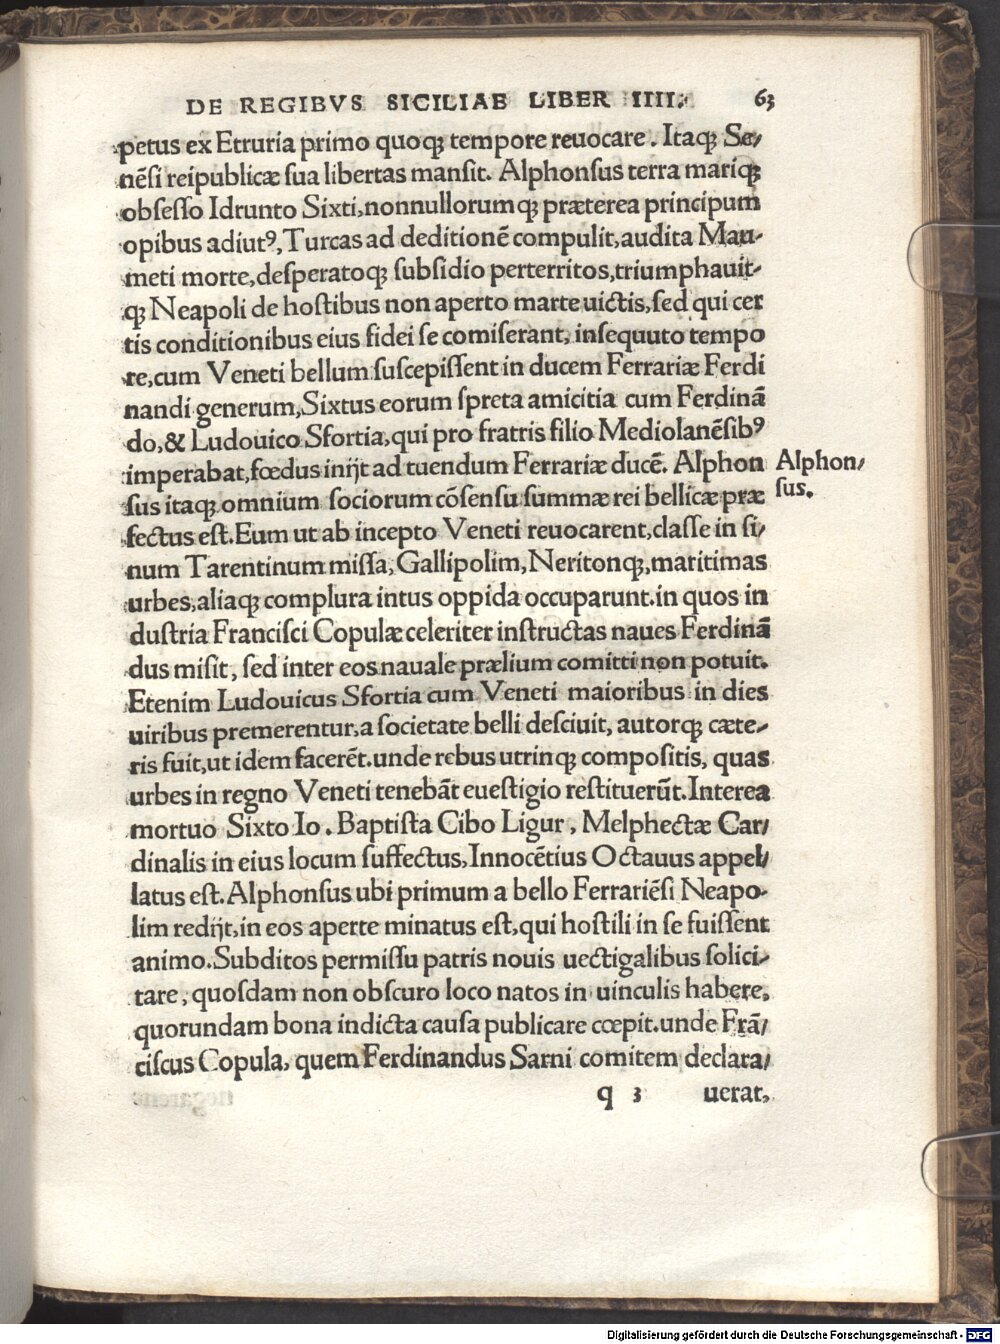 DE REGIBVS SICILIAE LIBER IIII. 63
petus ex Etruria primo quoqꝫ tempore reuocare. Itaqꝫ Se-
nēsi reipublicæ sua libertas mansit. Alphonsus terra mariqꝫ
obsesso Idrunto Sixti, nonnullorumqꝫ præterea principum
opibus adiutꝰ, Turcas ad deditionē compulit, audita Mau-
meti morte, desperatoqꝫ subsidio perterritos, triumphauit-
qꝫ Neapoli de hostibus non aperto marte uictis, sed qui cer
tis conditionibus eius fidei se comiserant, insequuto tempo
re, cum Veneti bellum suscepissent in ducem Ferrariæ Ferdi
nandi generum, Sixtus eorum spreta amicitia cum Ferdinā
do, & Ludouico Sfortia, qui pro fratris filio Mediolanēsibꝰ
imperabat, fœdus inijt ad tuendum Ferrariæ ducē. Alphon
sus itaqꝫ omnium sociorum cōsensu summæ rei bellicæ præ
fectus est. Eum ut ab incepto Veneti reuocarent, classe in si-
num Tarentinum missa, Gallipolim, Neritonqꝫ, maritimas
urbes, aliaqꝫ complura intus oppida occuparunt. in quos in
dustria Francisci Copulæ celeriter instructas naues Ferdinā
dus misit, sed inter eos nauale prælium comitti non potuit.
Etenim Ludouicus Sfortia cum Veneti maioribus in dies
uiribus premerentur, a societate belli desciuit, autorqꝫ cæte-
ris fuit, ut idem facerēt. unde rebus utrinqꝫ compositis, quas
urbes in regno Veneti tenebāt euestigio restituerūt. Interea
mortuo Sixto Io. Baptista Cibo Ligur, Melphectæ Car-
dinalis in eius locum suffectus, Innocētius Octauus appel-
latus est. Alphonsus ubi primum a bello Ferrariēsi Neapo-
lim redijt, in eos aperte minatus est, qui hostili in se fuissent
animo. Subditos permissu patris nouis uectigalibus solici-
tare, quosdam non obscuro loco natos in uinculis habere,
quorundam bona indicta causa publicare cœpit. unde Frā-
ciscus Copula, quem Ferdinandus Sarni comitem declara-
q 3 uerat,
Alphon-
sus.
Digitalisierung gefördert durch die Deutsche Forschungsgemeinschaft - DFG